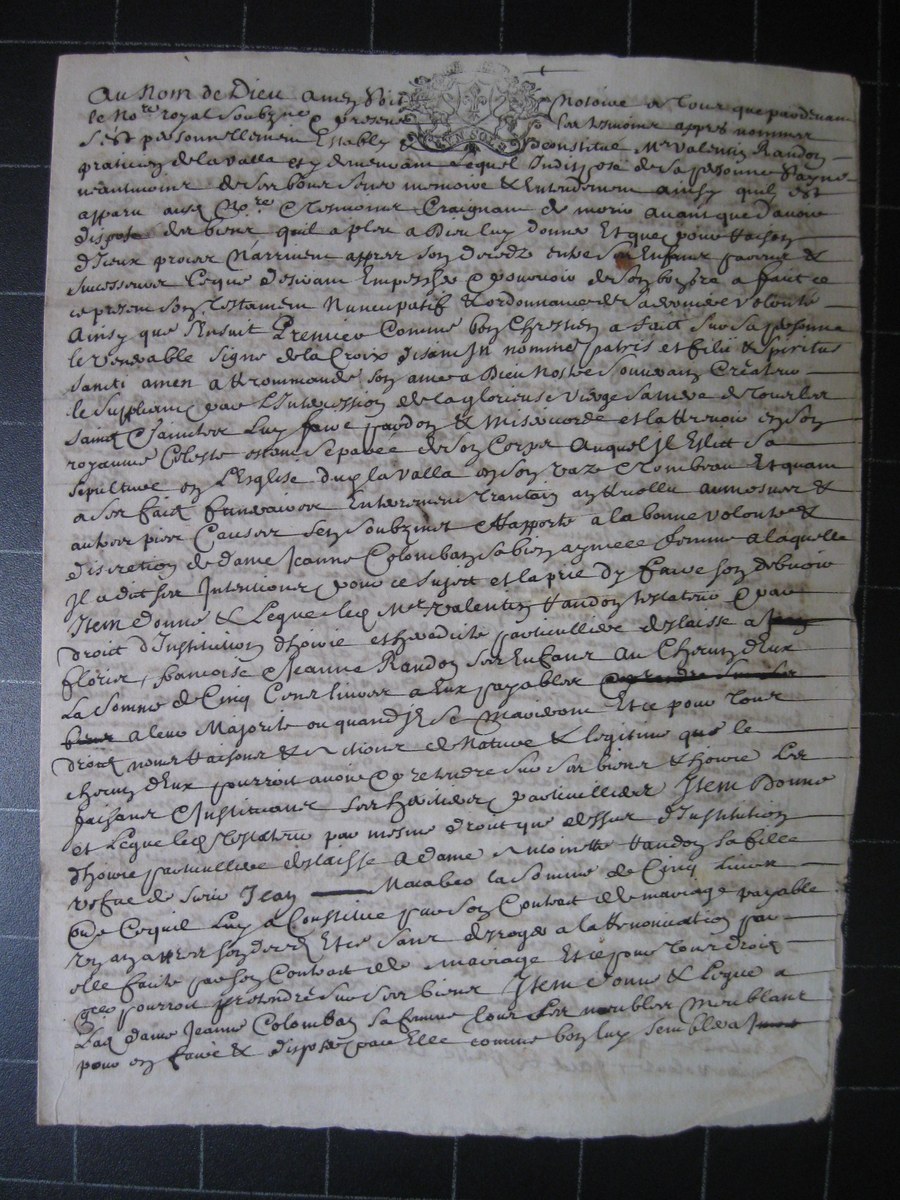 Au Nom de Dieu amen soit Notoire a tour que pardevant
le Nore royal soubzne & presens les tesmoins appres nommes
S'est personnellement Estably & constitué Mr Valentin Randon
praticien de la valla et y demeurant Lequel Indisposé de sa personne
neantmoins de ses bons sens memoire & Entendement ainsy quil est
apparu aud Nore & tesmoins Craignant de morir avant que d'avoir
disposé des biens quil a pleu a Dieu luy donner Et que pour Raison
d'Iceux proces N'arrivent appres son deces entre ses Enfans parens &
successeurs Ce que desirant Empescher a pouvoir de son bon gré a fait ce
ce present son Testament Nuncupatif & ordonnance de sa derniere volonté
Ainsy que s'Ensuit Premier Comme bon Chrestien a faict sur sa personne
le venerable signe de la Croix disant In nomine patris et filii & spiritus
sancti amen a Recommandé son ame a Dieu Nostre souverain Createur
le suppliant par L'Intercession de la glorieuse vierge sa mere & de tous les
saincts & sainctes Luy faire pardon & misericorde et la Recevoir en son
royaume Celeste estant separée de son Corps Auquel Il Eslitt sa
sepulture en L'Esglise dud lavalla en son vaze & tombeau Et quant
a ses fraix funeraires Enterrement Trantain aumosnes &
autres pies Causes s'en soubzmet & Rapporte a la bonne volonté &
discretion de dame Jeanne Colomban sa bien aymeee femme a laquelle
Il a dit ses Intentions pour ce sujet et la prie d'y faire son debvoir
Item donne & Legue led Mr Valentin Randon testateur & par
droit d'Institution d'hoirie et heredité particulliere delaisse a
florie, françoise & Jeanne Randon ses Enfans au Chacun d'Eux
La somme de Cinq Cens livres a Eux payables
a leur Majorité ou quand Ils se marieront Et ce pour tous
droits noms Raisons & actions de Nature & legitime que le
chacun d'Eux pourroit avoir & pretendre sur ses biens & hoirie Les
faisans & Instituans ses heritiers particulliers Item Donne
et Legue led testateur par mesme droit que dessus d'Institution
d'hoirie particulliere delaisse a dame Antoinette Randon sa fille
vefue de sieur Jean Macabeo la somme de Cinq livres
Outre Ce quil luy a Constitué par son Contract de mariage payable
un an appres son deces Et ce sans desroger a la Renonciation par
elle faicte par son Contract de mariage Et ce pour tous droits
quelle pourroit pretendre sur ses biens Item donne & Legue a
Lad dame Jeanne Colomban sa femme tous ses meubles meublans
pour en faire & disposer par Elle comme bon luy semblera